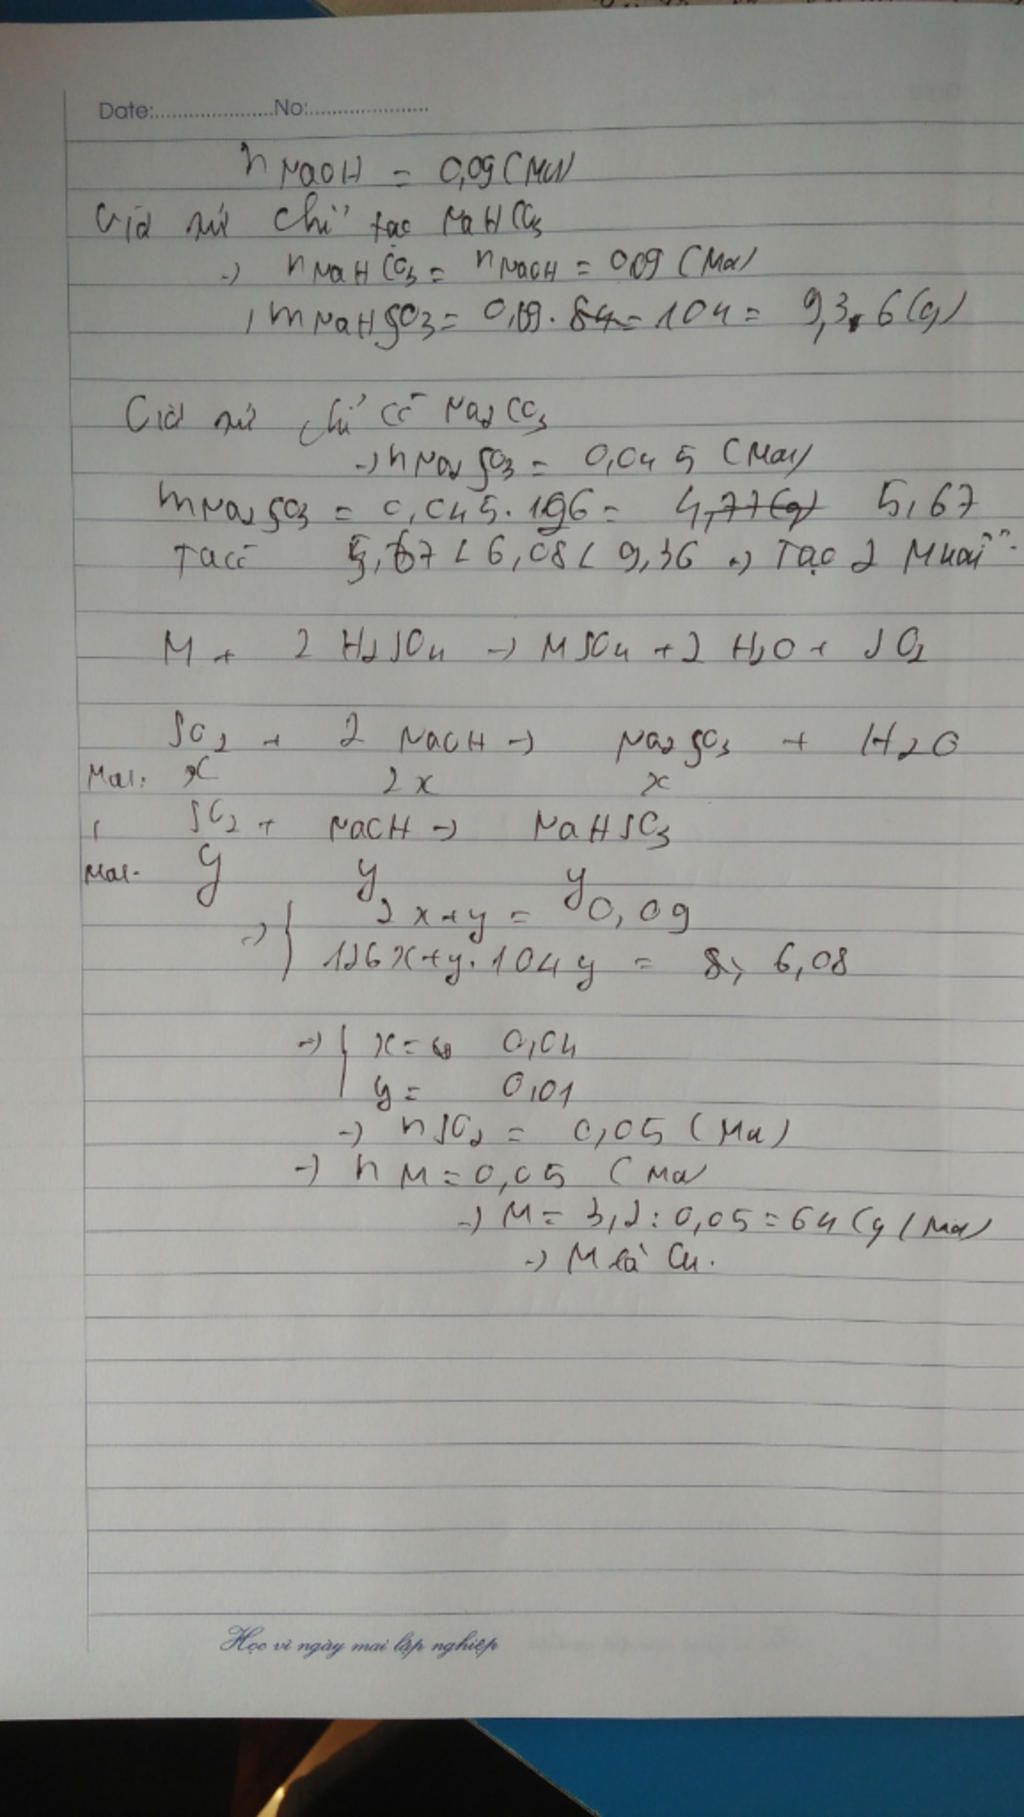 Date:.....................No:.....................
n NaOH = 0,09 (Mol)
Giả sử chỉ tạo NaHCO3
-> nNaHCO3 = nNaOH = 0,09 (Mol)
, mNaHSO3 = 0,09 . 84 = 104 = 9,3.6 (g)
Giả sử chỉ có Na2CO3
-> nNa2SO3 = 0,045 (Mol)
mNa2SO3 = 0,045.196 = 4,77(g) 5,67
Ta có 5,67 < 6,08 < 9,36 -> Tạo 2 Muối
M + 2 H2SO4 -> MSO4 + 2 H2O + SO2
SO2 + 2 NaOH -> Na2SO3 + H2O
Mol: x 2x x
, SO2 + NaOH -> NaHSO3
Mol. y y y
-> { 2x+y = 0,09
126x+y.104y = 8, 6,08
-> { x= 0,04
y= 0,01
-> nSO2 = 0,05 (Mol)
-> nM = 0,05 (Mol
-> M = 3,2 : 0,05 = 64 (g/Mol)
-> M là Cu.
Học vì ngày mai lập nghiệp